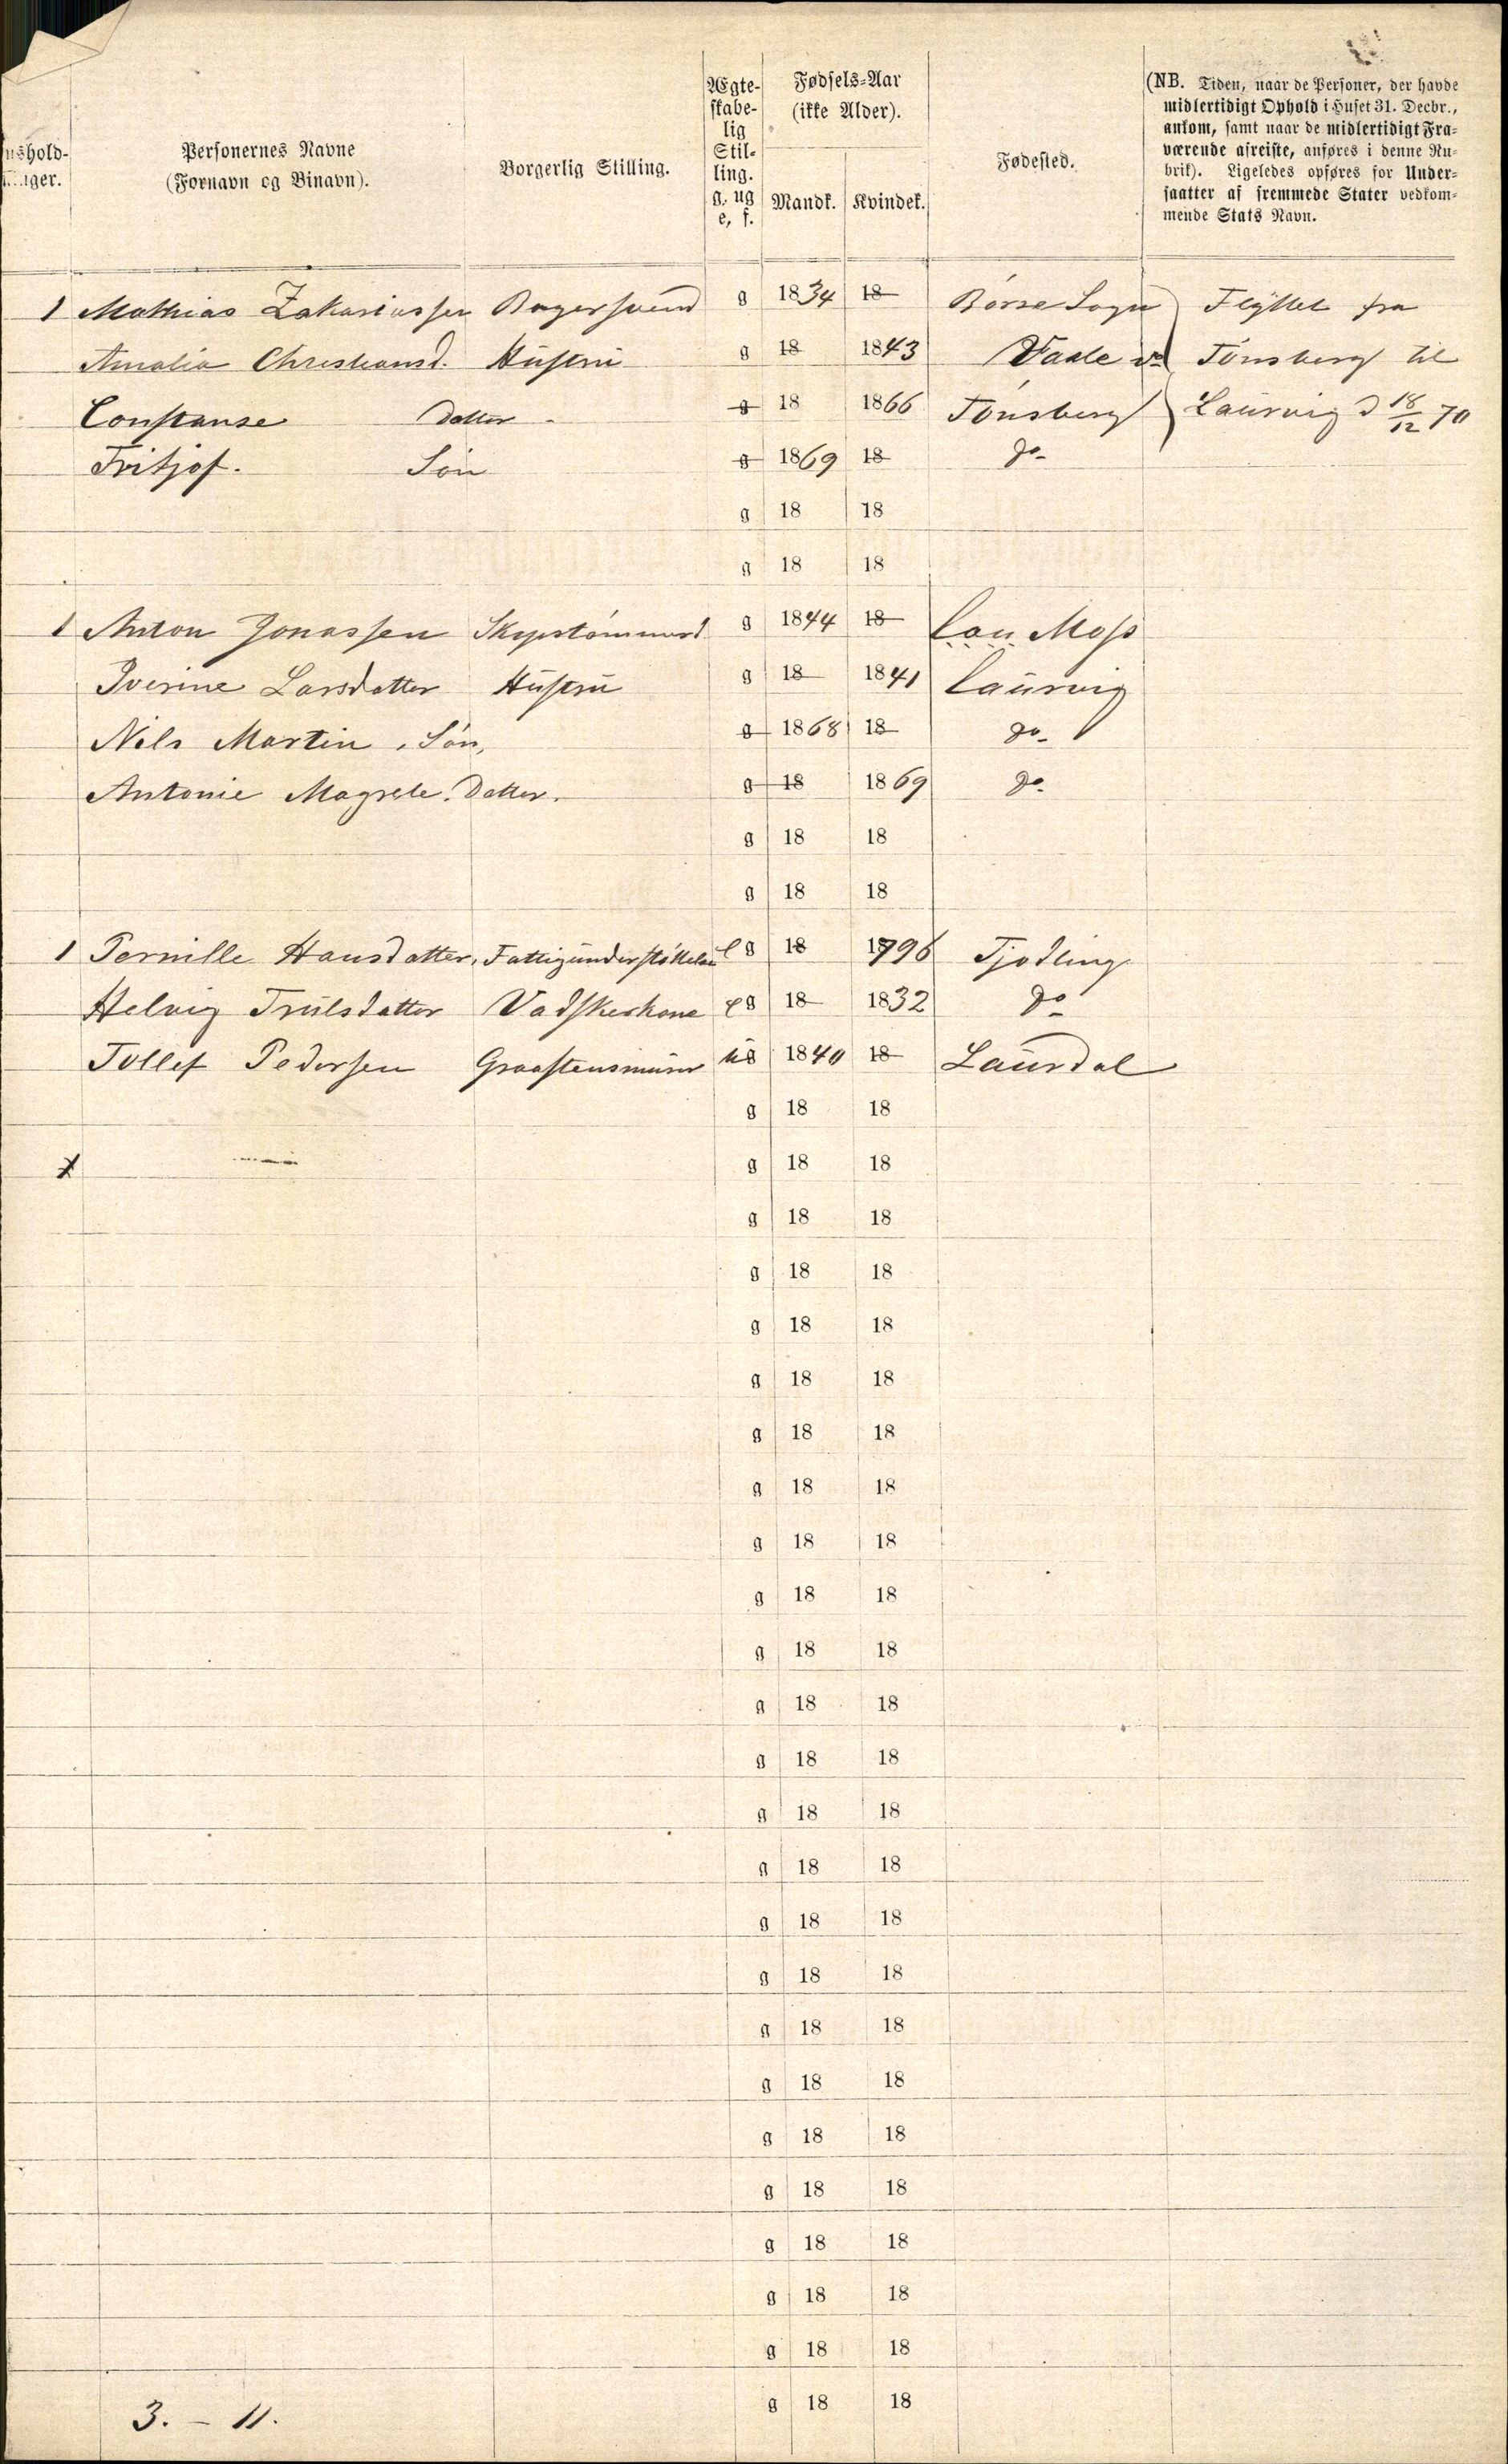 ushold-
nger.
Personernes Navne
(Fornavn og Binavn).
Borgerlig Stilling.
Ægte-
skabe-
lig
Stil-
ling.
g. ug
e, f.
Fødsels-Aar
(ikke Alder).
Mandk. Kvindek.
Fødested.
(NB. Tiden, naar de Personer, der havde
midlertidigt Ophold i Huset 31. Decbr.,
ankom, samt naar de midlertidigt Fra-
værende afreiste, anføres i denne Ru-
brik). Ligeledes opføres for Under-
saatter af fremmede Stater vedkom-
mende Stats Navn.
1 Mathias Zakariassen Bagersvend g 1834 18 Børse Sogn Flyttet fra
Amalia Christiansd. Hustru g 18 1843 Vaale do Tønsberg til
Constanse Datter g 18 1866 Tønsberg Laurvig d 18/12 70
Fritjof. Søn g 1869 18 do
g 18 18
g 18 18
1 Anton Jonassen Skipstømmerd g 1844 18 Lau Moss
Iverine Larsdatter Hustru g 18 1841 Laurvig
Nils Martin, Søn, g 1868 18 do
Antonie Magrete. Datter. g 18 1869 do
g 18 18
g 18 18
1 Pernille Hansdatter, e g 18 1796 Tjødling
Helvig Trulsdatter Vadskerkone e g 18 1832 do
Tollef Pedersen Graastensmurer ug 1840 18 Laurdal
g 18 18
g 18 18
g 18 18
g 18 18
g 18 18
g 18 18
g 18 18
g 18 18
g 18 18
g 18 18
g 18 18
g 18 18
g 18 18
g 18 18
g 18 18
g 18 18
g 18 18
g 18 18
g 18 18
g 18 18
g 18 18
g 18 18
g 18 18
g 18 18
g 18 18
3. - 11. g 18 18